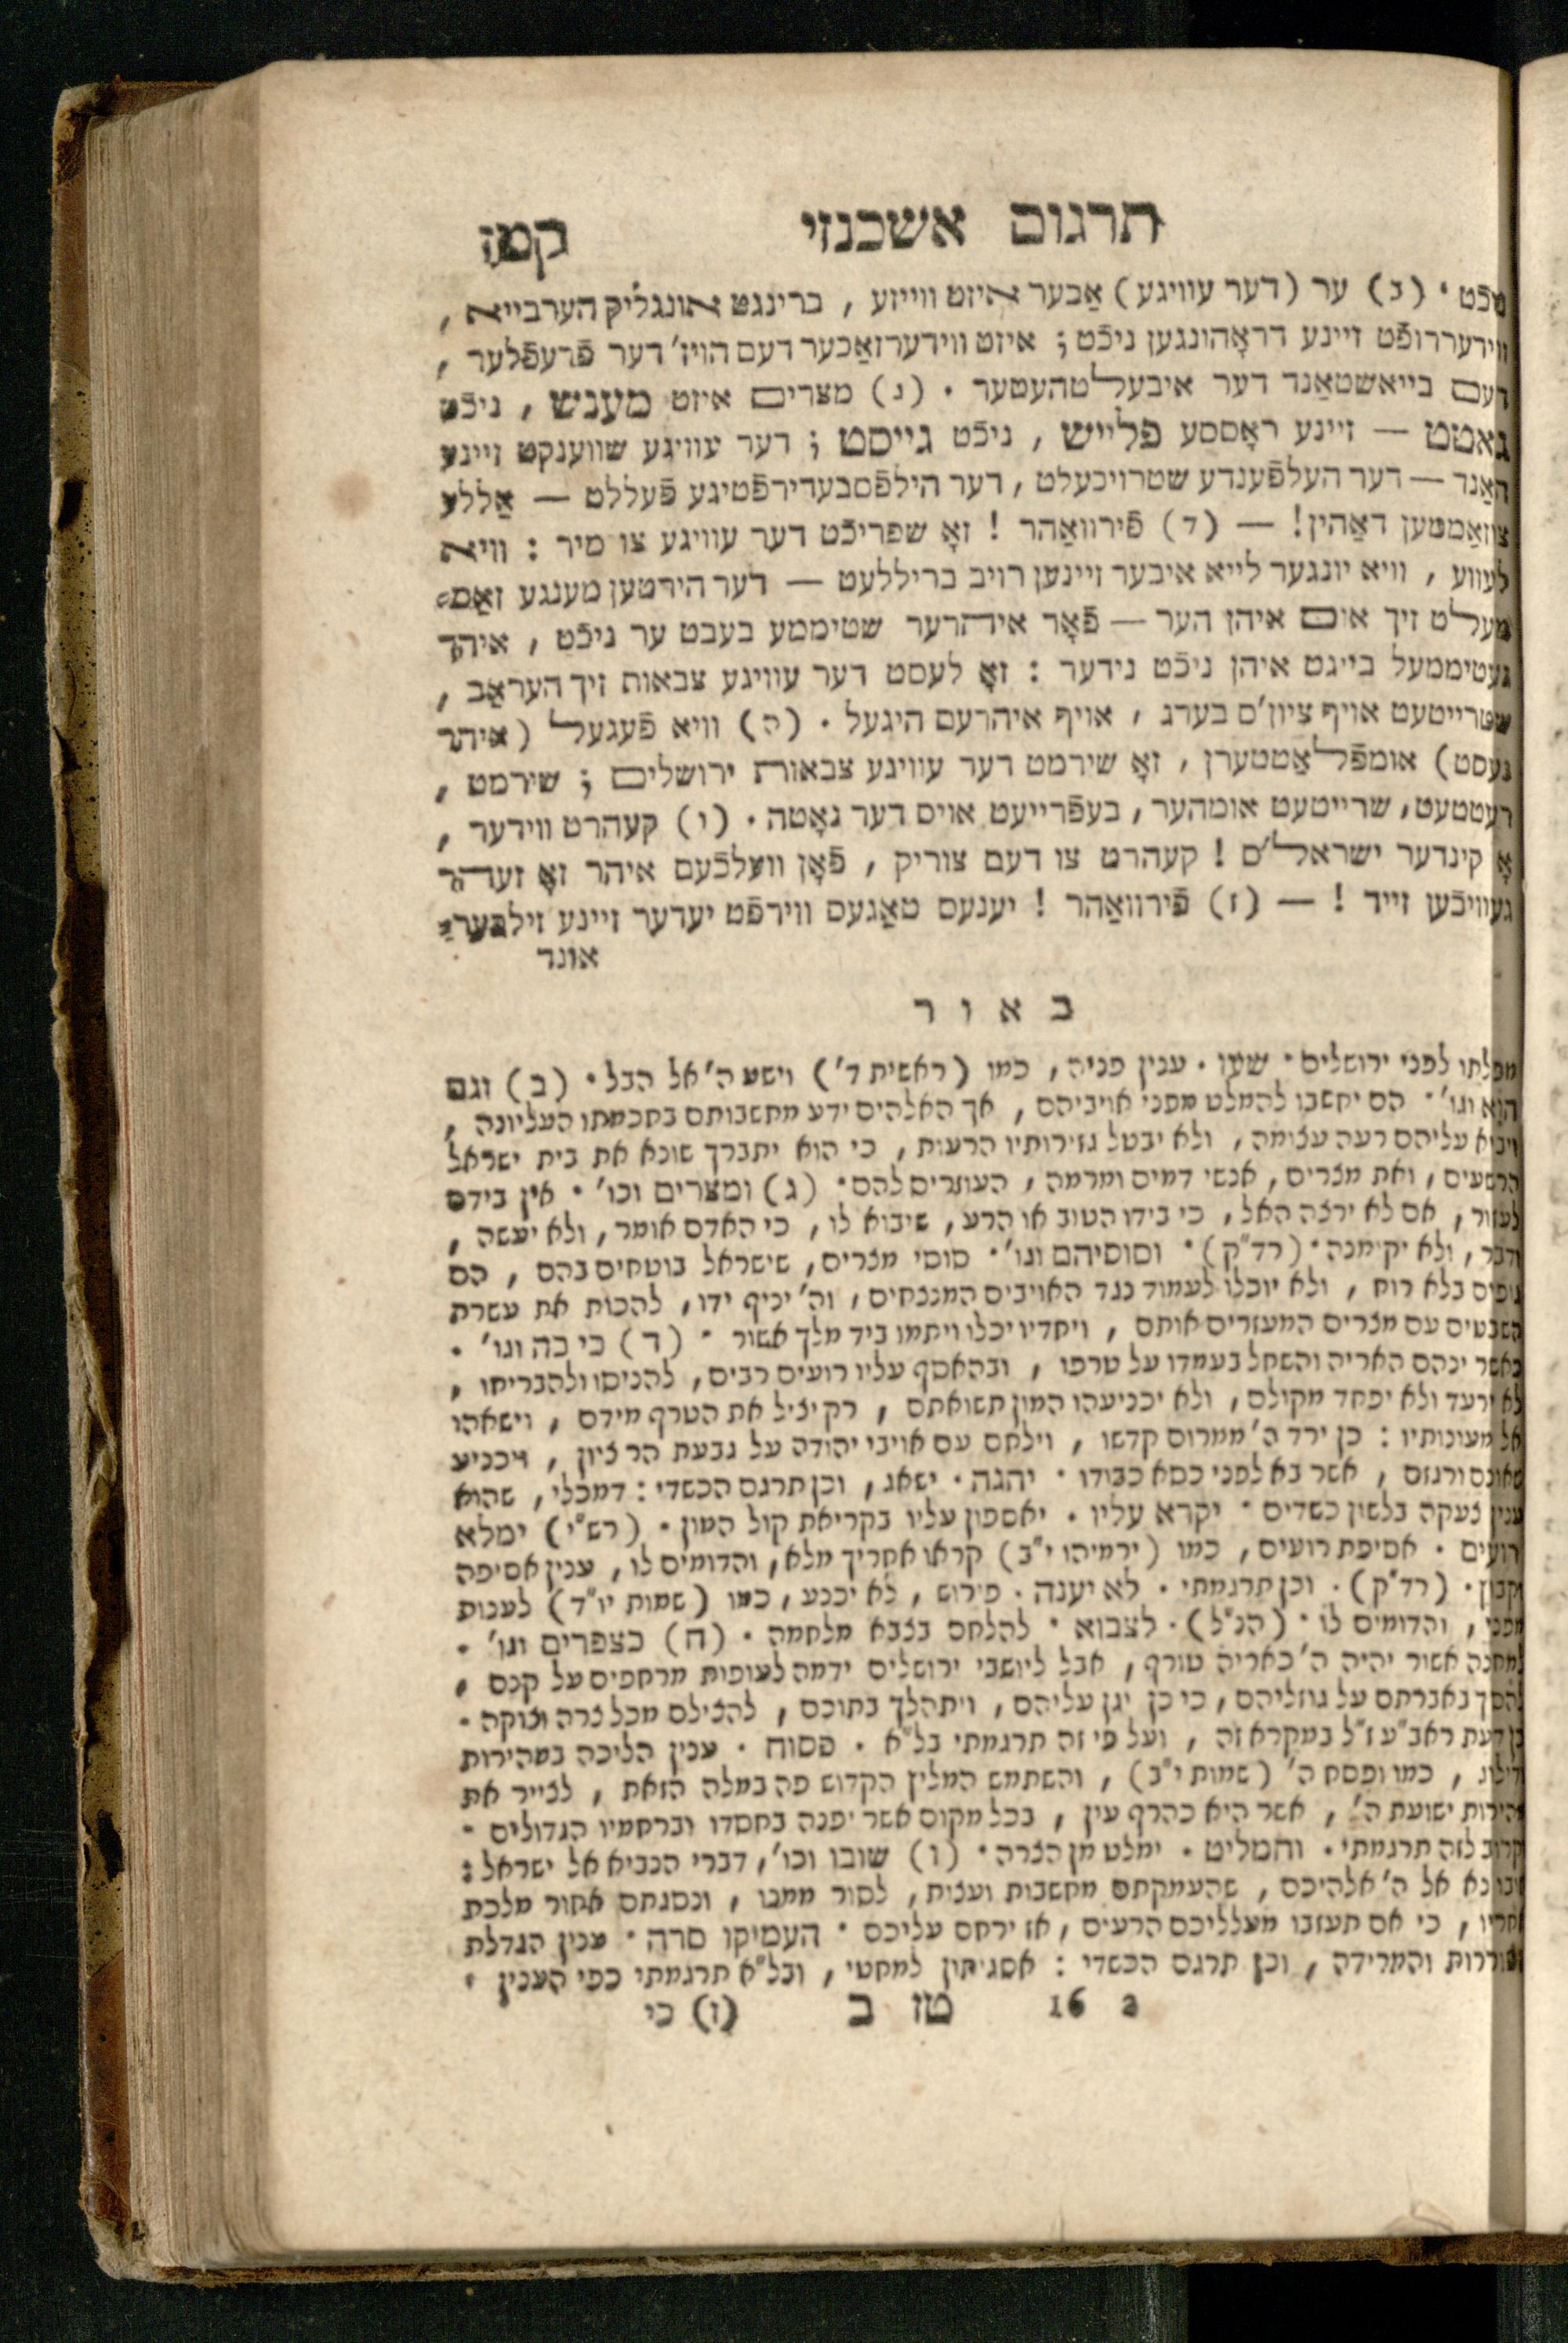 תרגום אשכנזי קמה
מכֿט · (ב) ער (דער עוויגע) אַבער איזט ווייזע, ברינגט אונגליק הערבייא,
ווידעררופֿט זיינע דראָהונגען ניכֿט; איזט ווידערזאַכער דעם הויז' דער פֿרעפֿלער,
דעם בייאשטאַנד דער איבעלטהעטער · (ג) מצרים איזט מענש, ניכֿט
גאָטט — זיינע ראָססע פלייש, ניכֿט גייסט; דער עוויגע שווענקט זיינע
האַנד — דער העלפֿענדע שטרויכעלט, דער הילפֿסבעדירפֿטיגע פֿעללט — אַללע
צוזאַממען דאַהין! — (ד) פֿירוואַהר! זאָ שפריכֿט דער עוויגע צו מיר: וויא
לעווע, וויא יונגער לייא איבער זיינען רויב בריללעט — דער הירטען מענגע זאַם־
מעלט זיך אום איהן הער — פֿאָר איהרער שטיממע בעבט ער ניכֿט, איהר
געטיממעל בייגט איהן ניכֿט נידער: זאָ לעסט דער עוויגע צבאות זיך העראַב,
שטרייטעט אויף ציון'ס בערג, אויף איהרעם היגעל · (ה) וויא פֿעגעל (איהר
נעסט) אומפֿלאַטטערן, זאָ שירמט דער עוויגע צבאות ירושלים; שירמט,
רעטטעט, שרייטעט אומהער, בעפֿרייעט אויס דער נאָטה · (ו) קעהרט ווידער,
אָ קינדער ישראל'ס! קעהרט צו דעם צוריק, פֿאָן וועלכֿעם איהר זאָ זעהר
געוויכֿען זייד! — (ז) פֿירוואַהר! יענעס טאַגעס ווירפֿט יעדער זיינע זילבער־
אונד
באור
מפלתו לפני ירושלים · שעו · ענין פניה, כמו (ראשית ד') וישע ה' אל הבל · (ב) וגם
הוא וגו' · הם יחשבו להמלט מפני אויביהם, אך האלהים ידע מחשבותם בחכמתו העליונה,
ויביא עליהם רעה עצומה, ולא יבטל גזירותיו הרעות, כי הוא יתברך שונא את בית ישראל
הרשעים, ואת מצרים, אנשי דמים ומרמה, העוזרים להם · (ג) ומצרים וכו' · אין בידם
לעזור, אם לא ירצה האל, כי בידו הטוב או הרע, שיבוא לו, כי האדם אומר, ולא יעשה,
ודבר, ולא יקימנה · (רד"ק) · וסוסיהם וגו' · סוסי מצרים, שישראל בוטחים בהם, הם
גופים בלא רוח, ולא יוכלו לעמוד כנגד האויבים המנצחים, וה' יניף ידו, להכות את עשרת
השבטים עם מצרים המעזרים אותם, ויחדיו יכלו ויתמו ביד מלך אשור · (ד) כי כה וגו' ·
כאשר ינהם האריה והשחל בעמדו על טרפו, ובהאסף עליו רועים רבים, להניסו ולהבריחו,
לא ירעד ולא יפחד מקולם, ולא יכניעהו המון תשואתם, רק יציל את הטרף מידם, וישאהו
אל מעונותיו: כן ירד ה' ממרום קדשו, וילחם עם אויבי יהודה על גבעת הר ציון, ויכניע
שאונם ורגזם, אשר בא לפני כסא כבודו · יהגה · ישאג, וכן תרגם הכשדי: דמכלי, שהוא
ענין צעקה בלשון כשדים · יקרא עליו · יאספון עליו בקריאת קול המון · (רש"י) ימלא
רועים · אסיפת רועים, כמו (ירמיהו י"ב) קראו אחריך מלא, והדומים לו, ענין אסיפה
וקבוץ · (רד"ק) · וכן תרגמתי · לא יענה · פירוש, לא יכנע, כמו (שמות יו"ד) לענות
מפני, והדומים לו · (הנ"ל) · לצבוא · להלחם בצבא מלחמה · (ח) כצפרים וגו' ·
למחנה אשור יהיה ה' כאריה טורף, אבל ליושבי ירושלים ידמה לעופות מרחפים על קנם,
להסך באברתם על גוזליהם, כי כן יגן עליהם, ויתהלך בתוכם, להצילם מכל צרה וצוקה ·
כן דעת ראב"ע ז"ל במקרא זה, ועל פי זה תרגמתי בל"א · פסוח · ענין הליכה במהירות
ודילוג, כמו ופסח ה' (שמות י"ב), והשתמש המליץ הקדוש פה במלה הזאת, לצייר את
מהירות ישועת ה', אשר היא כהרף עין, בכל מקום אשר יפנה בחסדו וברחמיו הגדולים ·
קרוב לזה תרגמתי · והמליט · ימלט מן הצרה · (ו) שובו וכו', דברי הנביא אל ישראל:
שובו נא אל ה' אלהיכם, שהעמקתם מחשבות ועצות, לסור ממנו, ונסגתם אחור מלכת
אחריו, כי אם תעזבו מעלליכם הרעים, אז ירחם עליכם · העמיקו סרה · ענין הגדלת
הסוררות והמרידה, וכן תרגם הכשדי: אסגיתון למחטי, ובל"א תרגמתי כפי הענין ·
16 2 טז ב (ז) כי